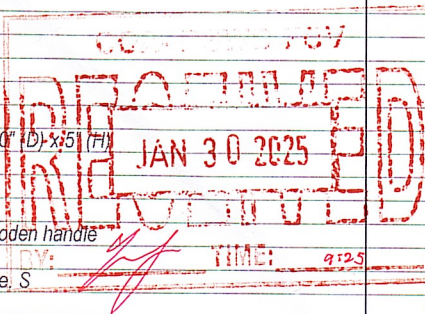 RECEIVED
0" (D) x 5" (H)
JAN 30 2025
oden handle
BY: TIME: 9:25
e, S